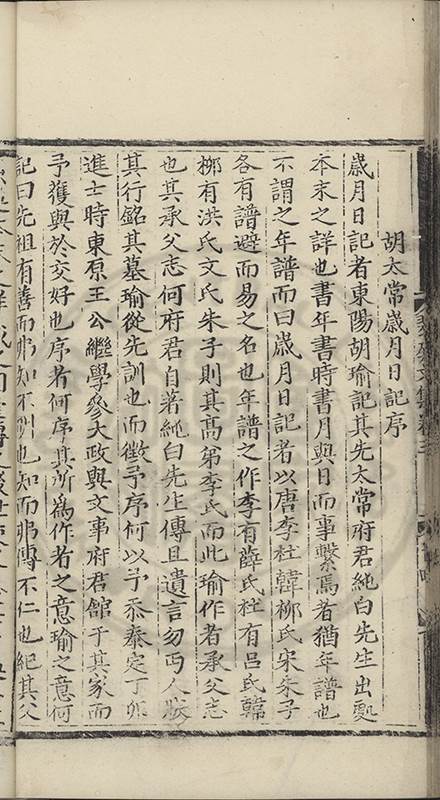 胡太常歲月日記序
歲月日記者東陽胡瑜記其先太常府君純白先生出處
本末之詳也書年書時書月與日而事繫焉者猶年譜也
不謂之年譜而曰歲月日記者以唐李杜韓柳氏宋朱子
各有譜避而易之名也年譜之作李有薛氏杜有呂氏韓
柳有洪氏文氏朱子則其髙弟李氏而此瑜作者承父志
也其承父志何府君自著純白先生傳且遺言勿丐人狀
其行銘其墓瑜從先訓也而徵予序何以予忝泰定丁卯
進士時東原王公繼學參大政與文事府君館于其家而
予獲與於交好也序者何序其所爲作者之意瑜之意何
記曰先祖有善而弗知不明也知而弗傳不仁也紀其父